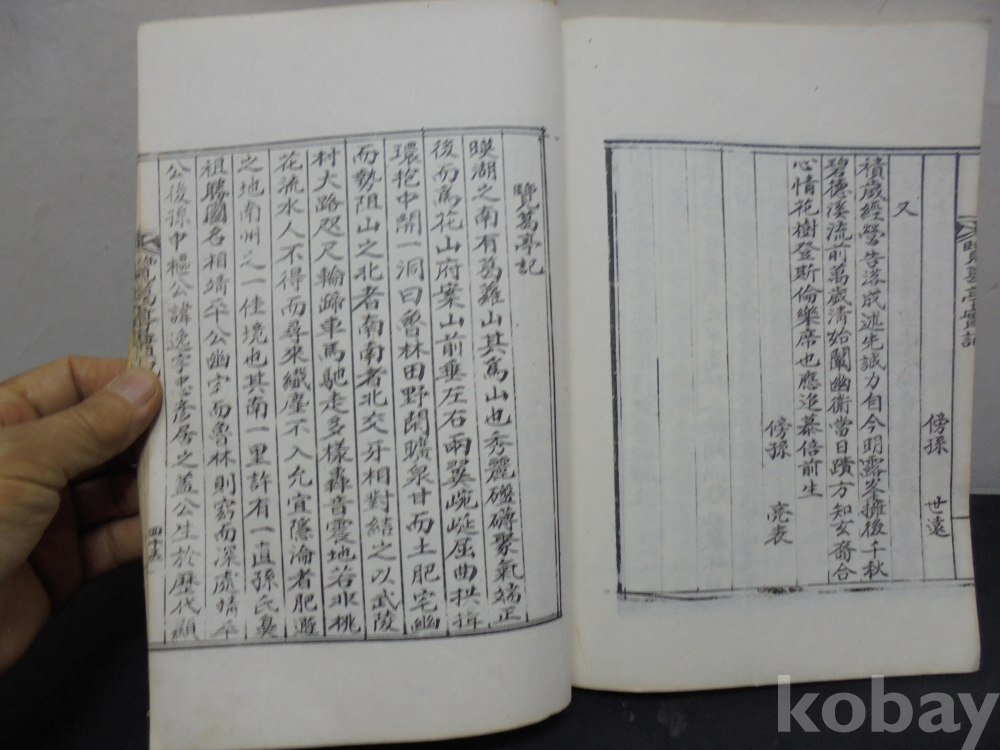 傍孫 世遠
又
積歲經營告落成述先誠力自今明露峯擁後千秋
碧德溪流前萬歲清始闡幽衛當日蹟方知玄裔合
心情花樹登斯倫樂席也應追慕倍前生
傍孫 亮表
覽葛亭記
暎湖之南有葛蘿山其爲山也秀麗磅礴聚氣端正
後而爲花山府案山前垂左右兩翼蜿蜒屈曲拱揖
環抱中開一洞曰魯林田野闊曠泉甘而土肥宅幽
而勢阻山之北者南南者北交牙相對結之以武陵
村大路咫尺輪蹄車馬馳走多樣轟音震地若非桃
花流水人不得而尋來纖塵不入允宜隱淪者肥遯
之地南州之一佳境也其南一里許有一直孫氏奠
祖勝國名相靖平公幽宅而魯林則窈而深處靖平
公後孫中樞公諱逸字 居之蓋公生於歷代顯
四十五
kobay